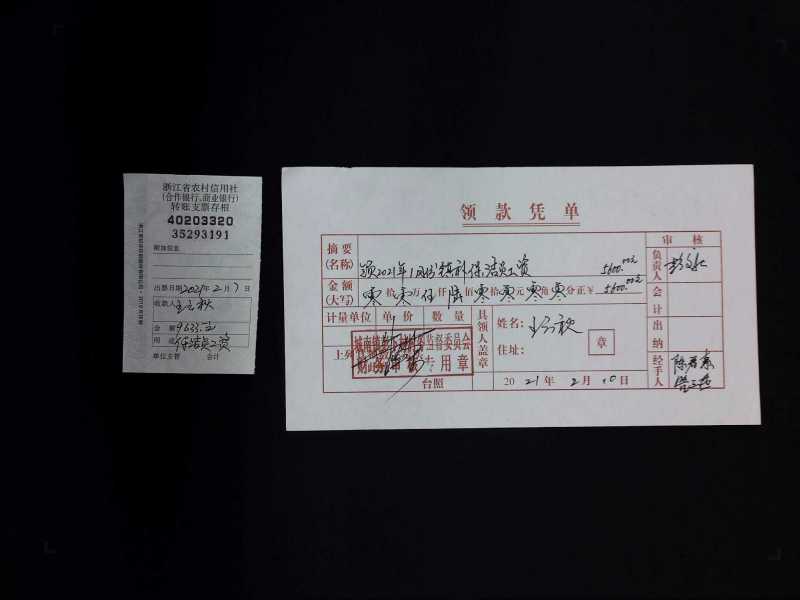 浙江省农村信用社
(合作银行、商业银行)
转账支票存根
40203320
35293191
附加信息
出票日期2021年2月7日
收款人
金额 9633.元
用途 保洁员工资
单位主管 会计
领款凭单
摘要
(名称)
领2021年1月份镇补保洁员工资 5600.00元
金额
(大写)
零拾零万伍仟陆佰零拾零元零角零分正¥5600.00元
计量单位 单价 数量
上列
台照
财务审核专用章
具领人盖章
姓名:
住址:
章
2021年2月10日
审核
负责人
会计
出纳
经手人